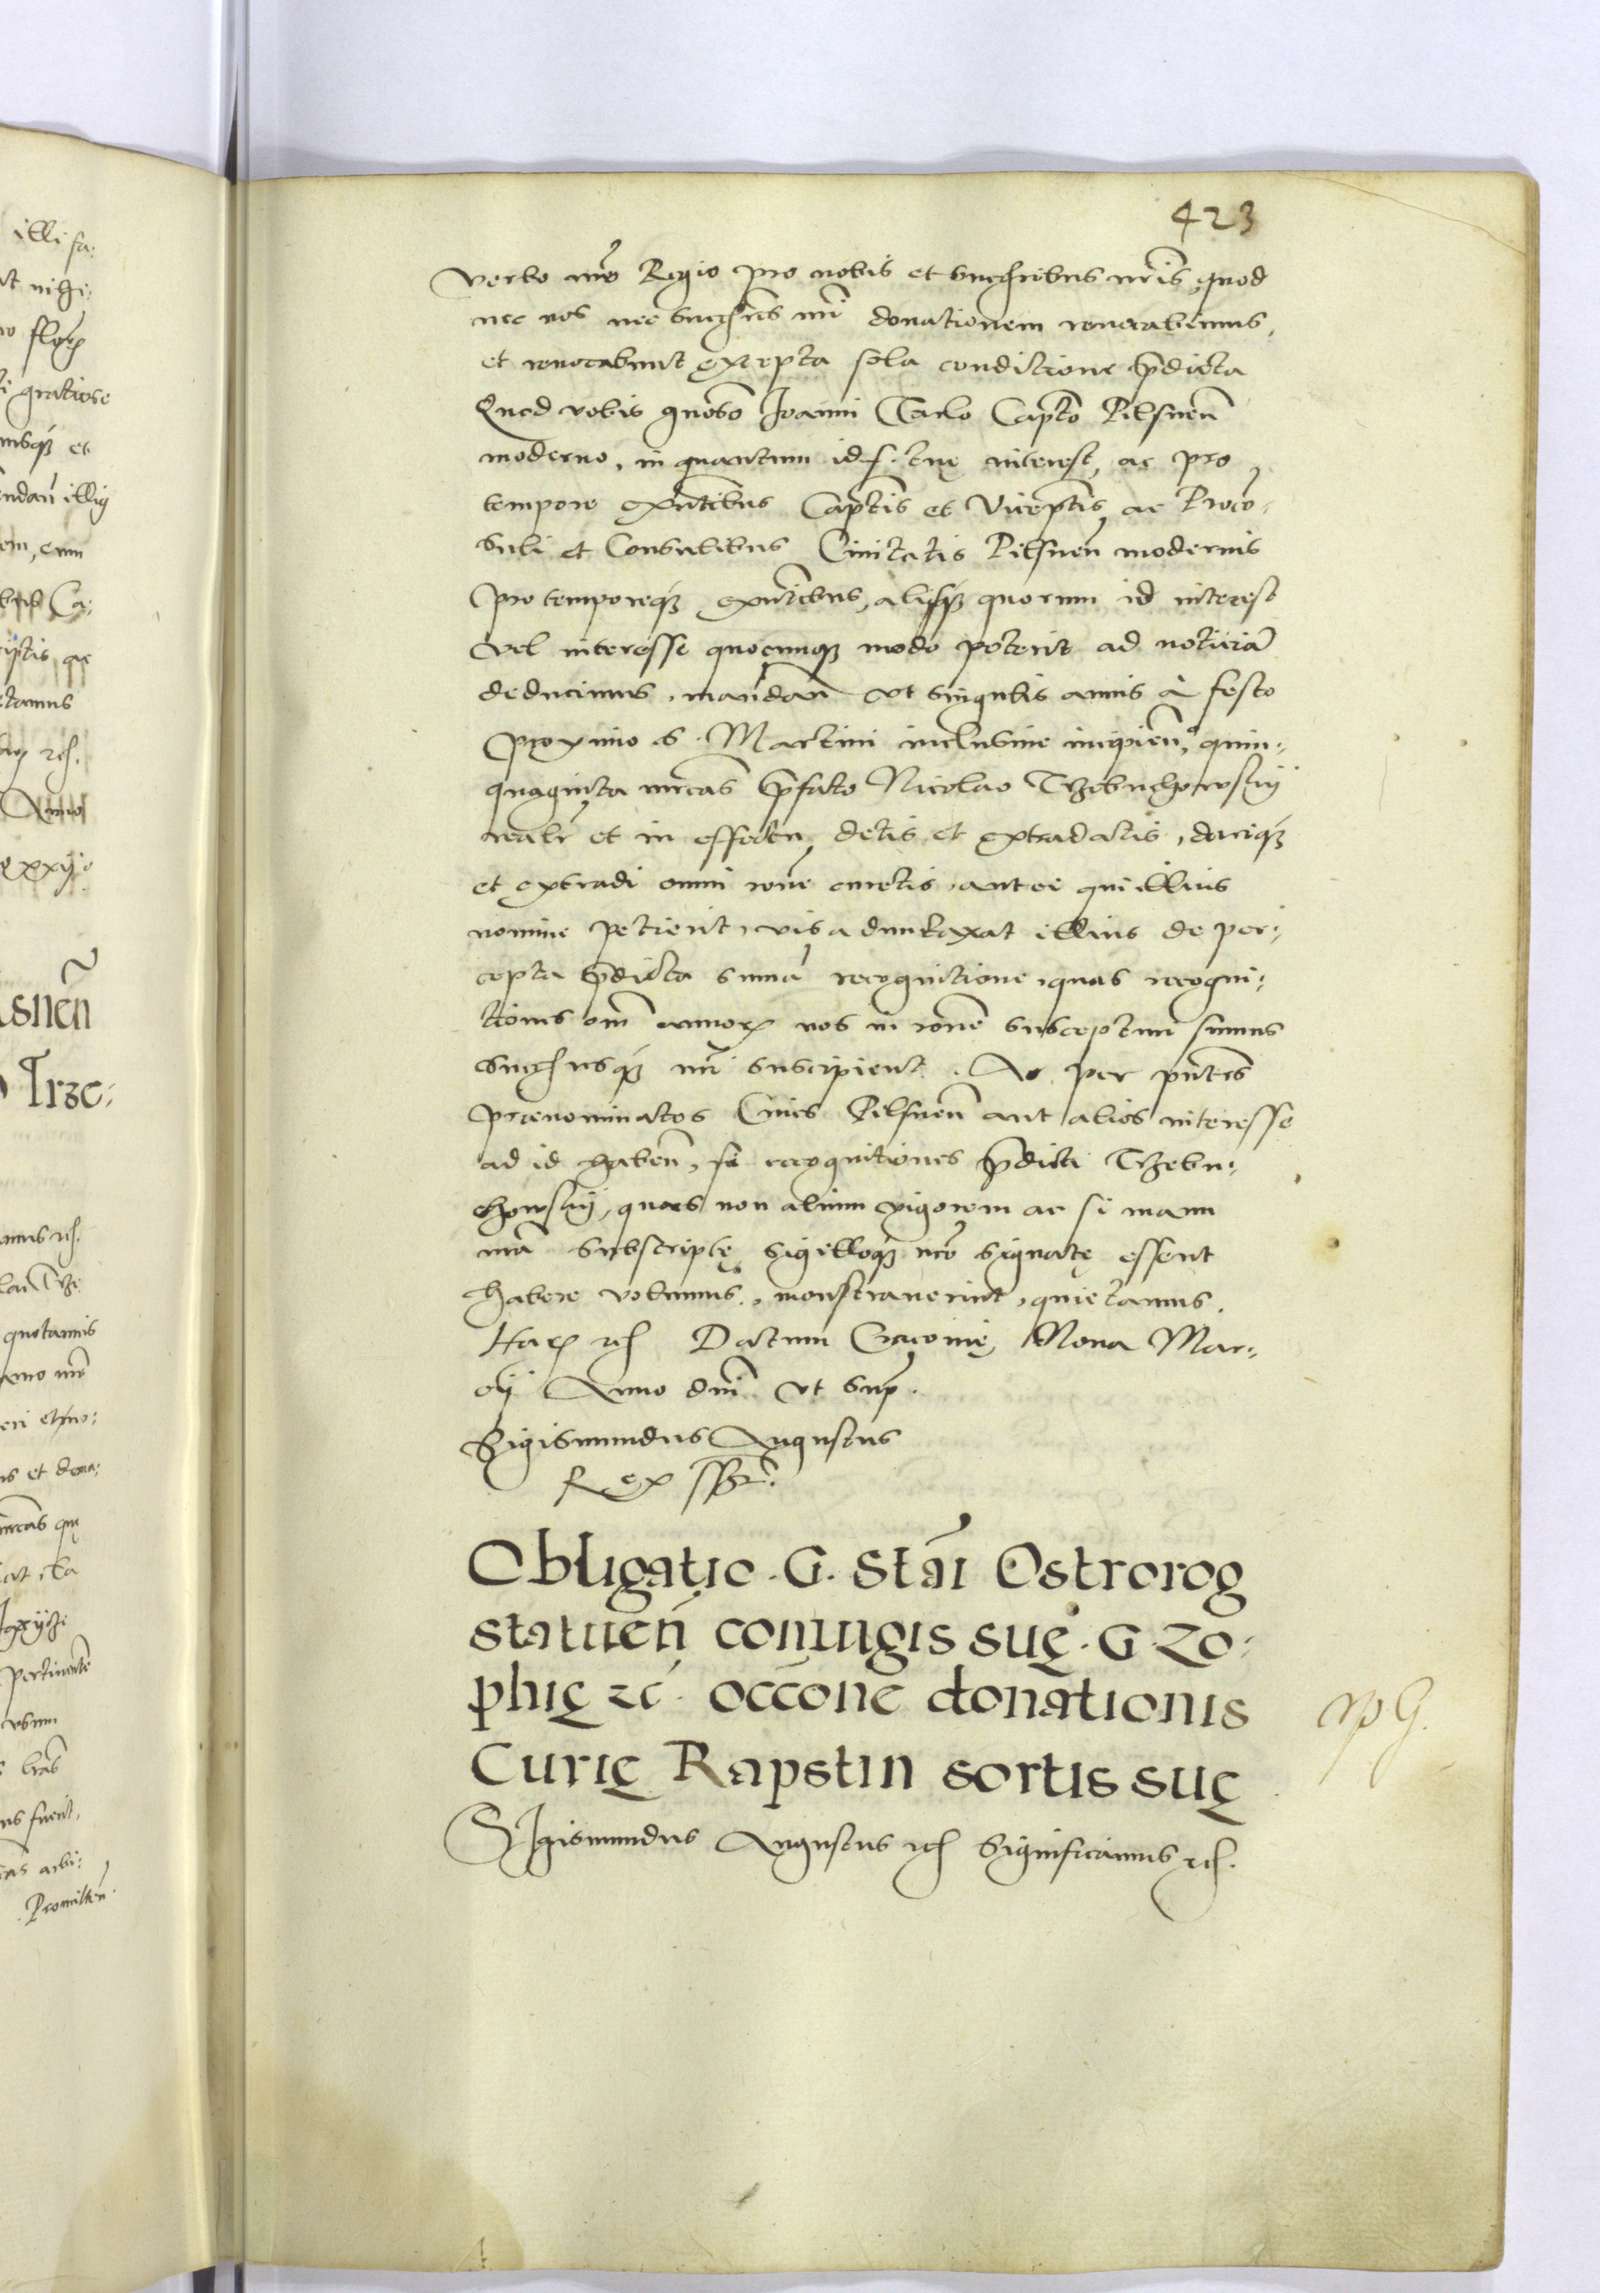 423
verbo nro Regio pro nobis et succribus nris, quod
nec nos nec succres nri donationem revocabimus,
et revocabunt excepta sola conditione pdicta
Quod vobis gnoso Joanni Tarlo Capto Pilsnen
moderno, in quantum id f. tue interest, ac pro
tempore exntibus Captis et Viceptis, ac Proco-
suli et Consulibus Civitatis Pilsnen modernis
pro temporeq exntibus, alijsq quorum id interest
vel interesse quocunq modo poterit ad noticia
deducimus, mandan ut singulis annis à festo
proximo S. Martini inclusive incipien, quin-
quaginta mrcas pfato Nicolao Trzebuchowskij
realr et in effectu detis et extradatis, dariq
et extradi omni rone curetis, aut ei qui illius
nomine petierit, visa duntaxat illius de per-
cepta pdicta suma recognitione, quas recogni-
tiones om annor nos in rone suscepturi sumus
succresq nri suscipient. Ac per pntes
prænominatos Cives Pilsnen aut alios interesse
ad id haben, si recognitiones pdicti Trzebu-
chowskij, quas non alium vigorem ac si manu
nra subscripte sigilloq nro signate essent
habere volumus, monstraverint, quietamus.
Har rc Datum Cracovie, Nona Mar-
cij Anno dni ut sup.
Sigismundus Augustus
Rex sspt.
Obligatio G. Stai Ostrorog
statuen coniugis sue G Zo-
phie rc occone donationis
Curie Rapstin sortis sue
Sigismundus Augustus rc Significamus rc.